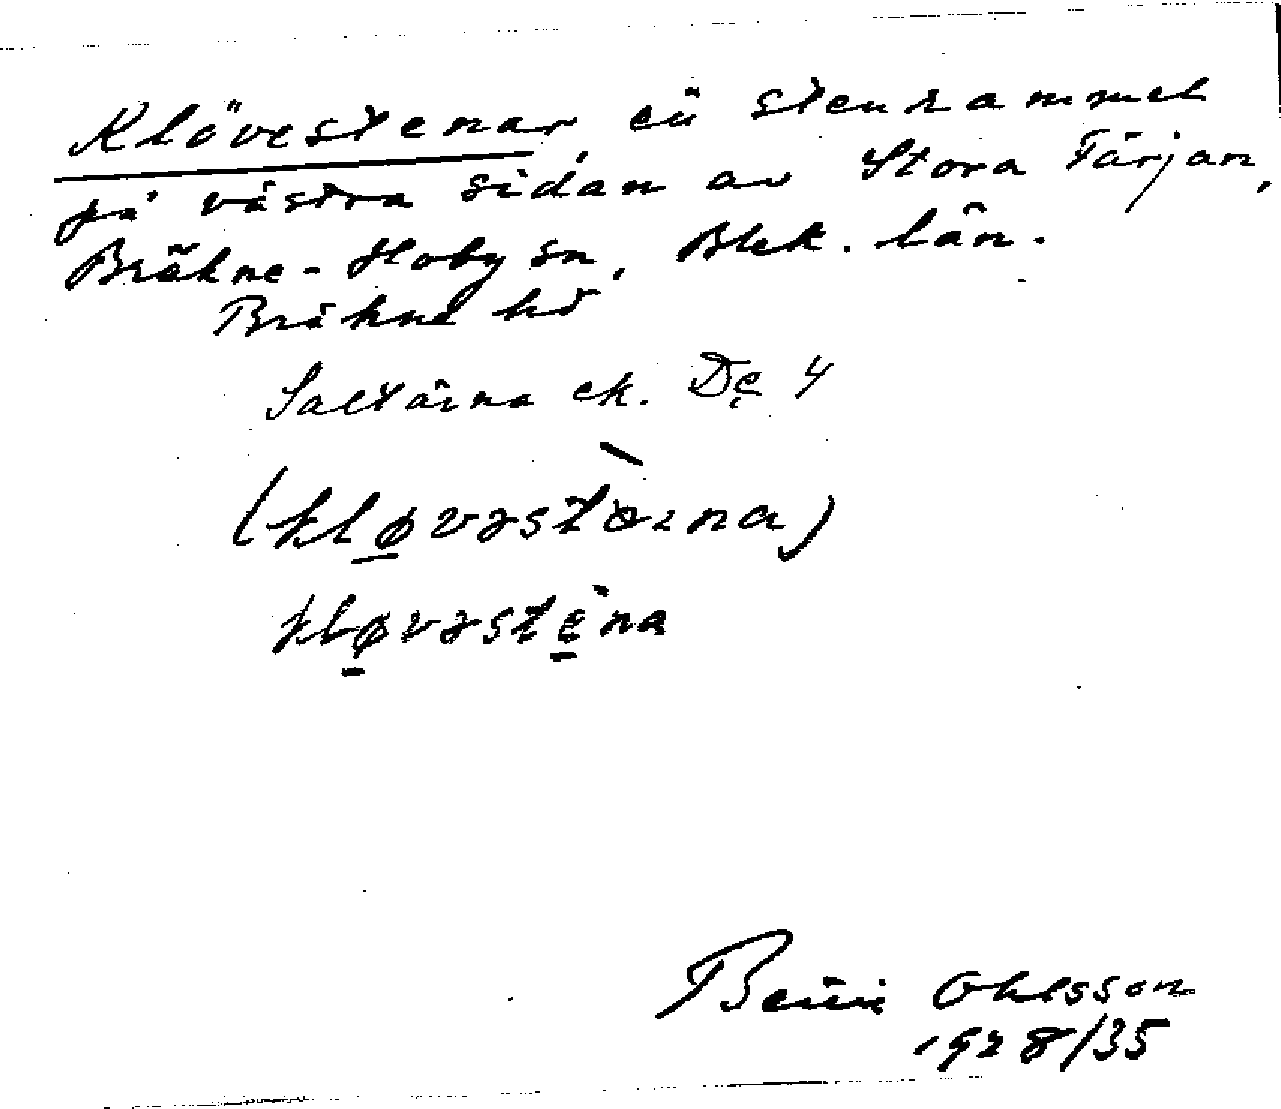 Klövestenar, en stenrammel
på västra sidan av Stora Tärjan,
Bräkne-Hoby sn, Blek. län.
Bräkne hd
Saltärna ek. De 4
(kløvəstèɪna)
kløvəstèna
Ohlsson
1928/35